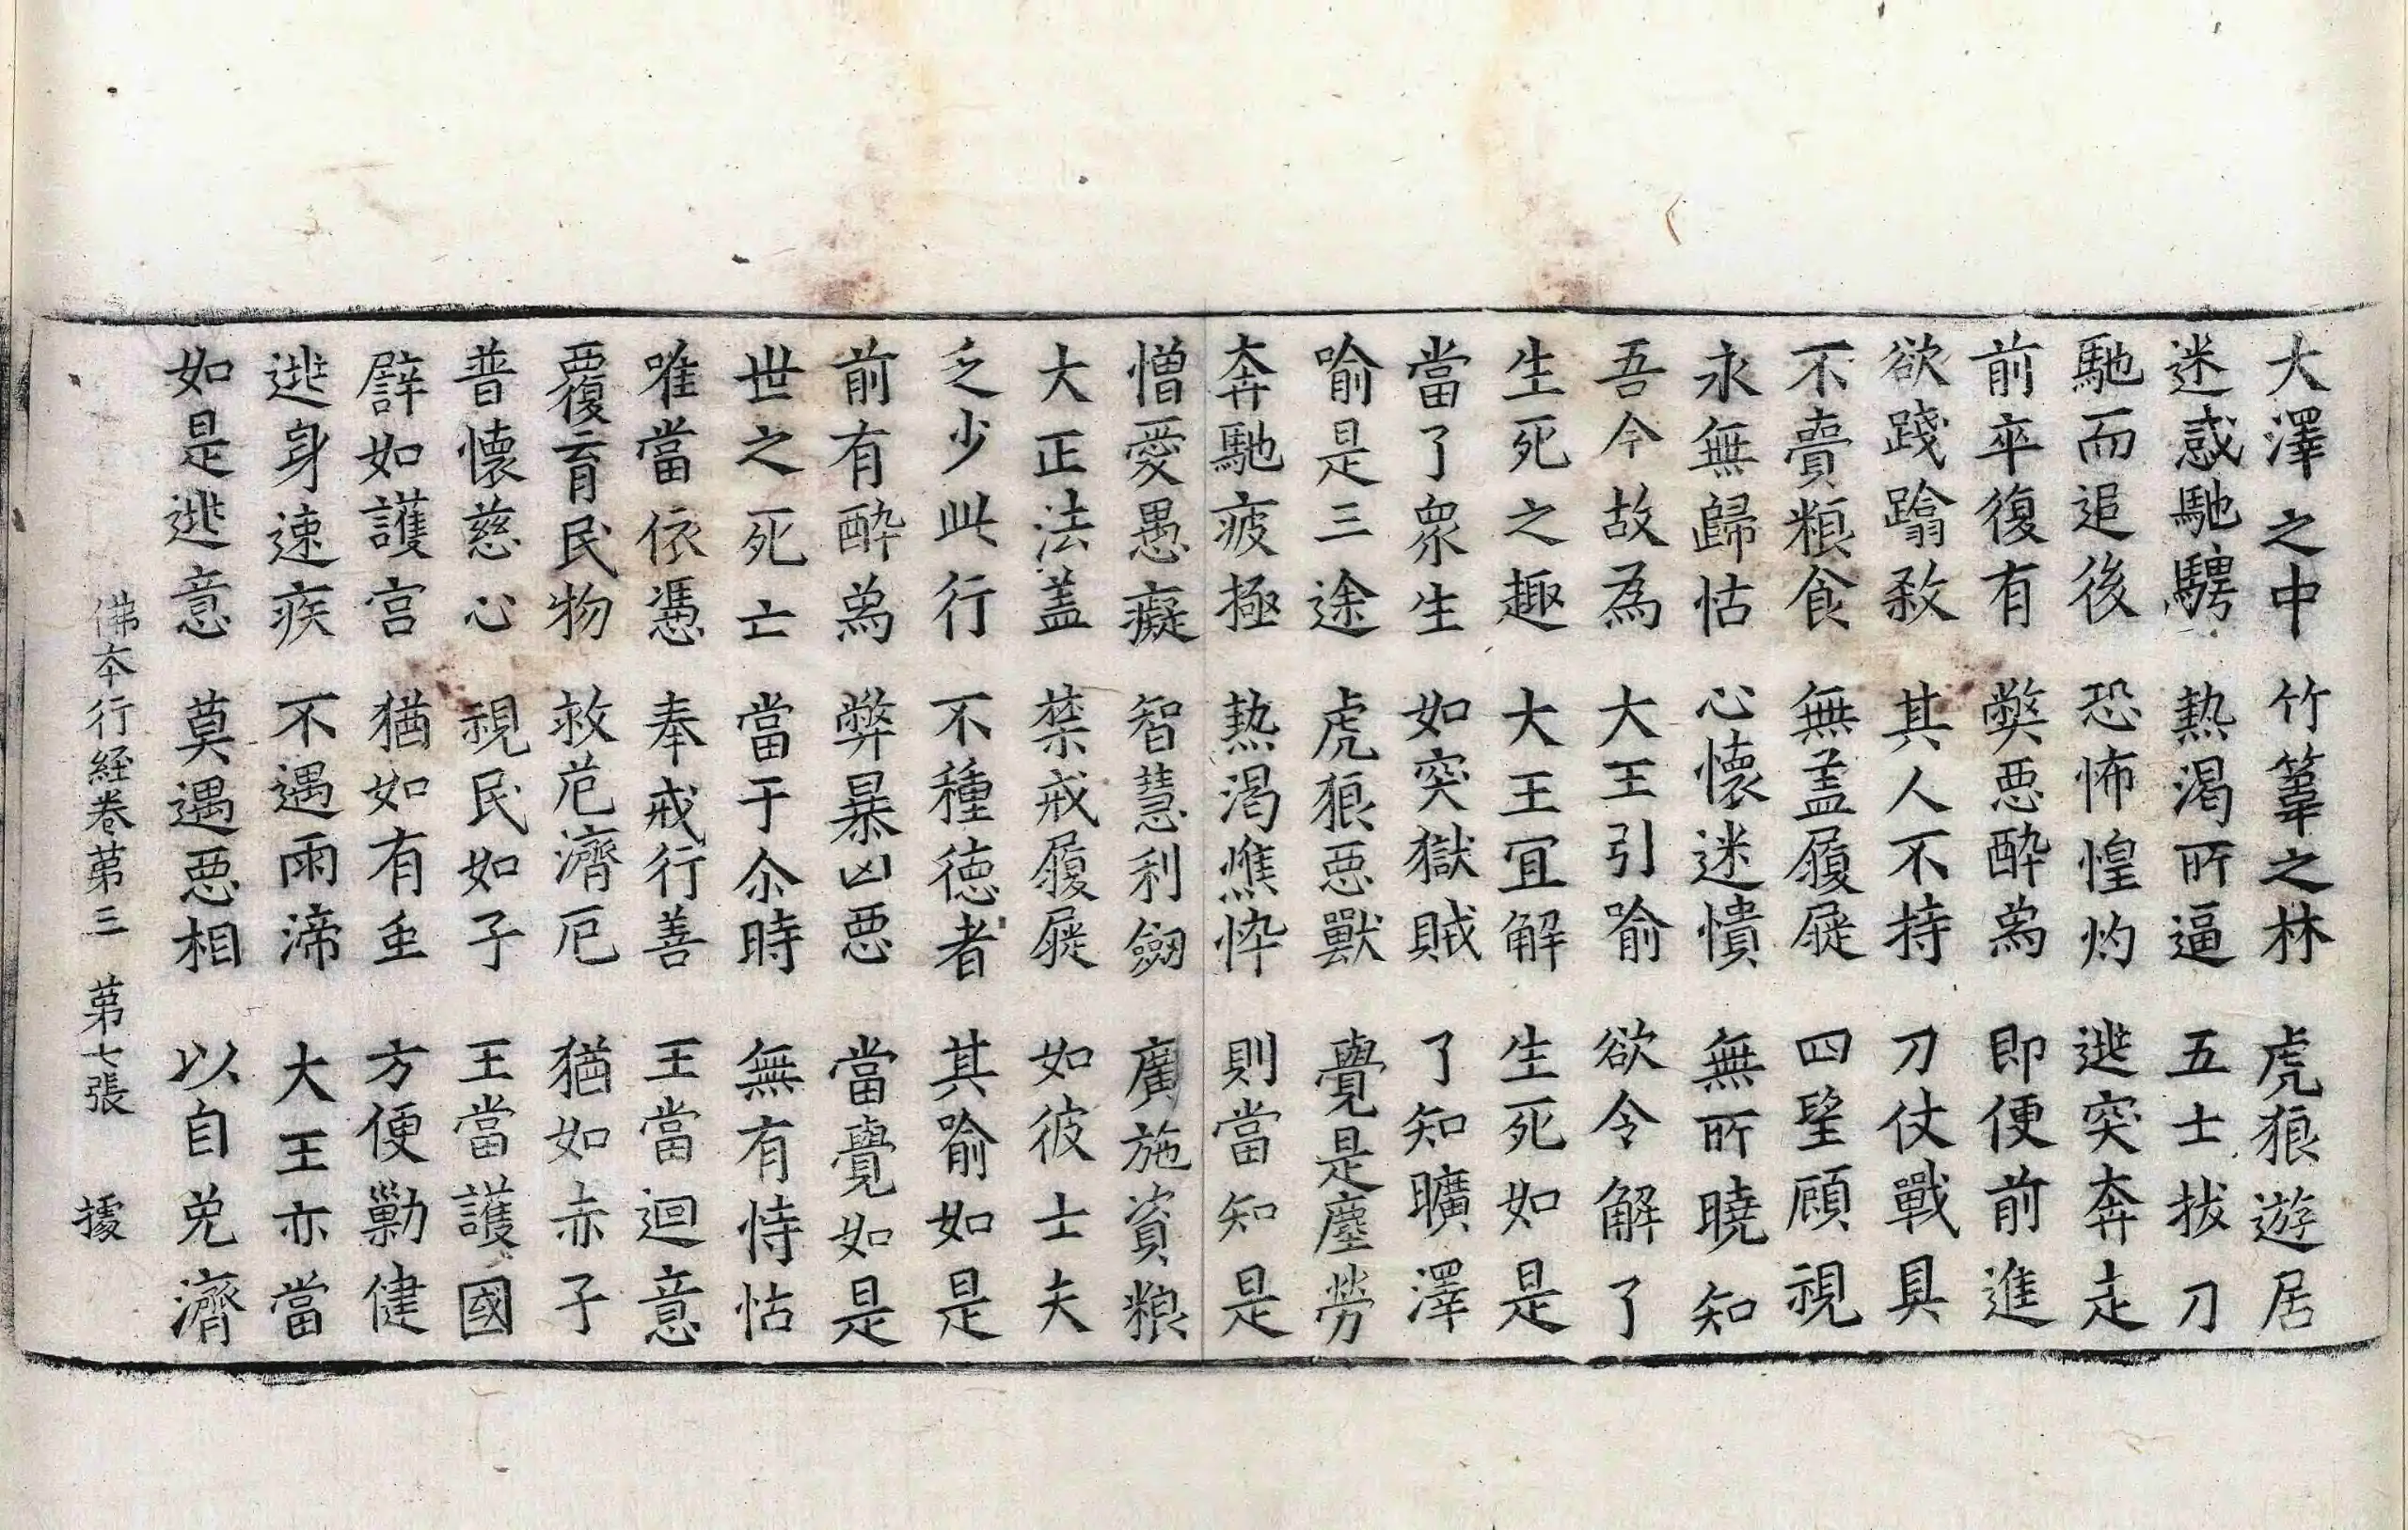 大澤之中 竹葦之林 虎狼遊居
迷惑馳騁 熱渴所逼 五士拔刀
馳而追後 恐怖惶灼 逃突奔走
前卒復有 弊惡醉為 即便前進
欲踐蹹敹 其人不持 刀仗戰具
不賷粮食 無盖履屣 四望顧視
永無歸怙 心懷迷憒 無所曉知
吾今故為 大王引喻 欲令解了
生死之趣 大王宜解 生死如是
當了眾生 如突獄賊 了知曠澤
喻是三途 虎狼惡獸 覺是塵勞
奔馳疲極 熱渴憔悴 則當知是
憎愛愚癡 智慧利劒 廣施資粮
大正法盖 禁戒履屣 如彼士夫
乏少此行 不種德者 其喻如是
前有醉為 弊暴凶惡 當覺如是
世之死亡 當于尒時 無有恃怙
唯當依憑 奉戒行善 王當迴意
覆育民物 救危濟厄 猶如赤子
普懷慈心 視民如子 王當護國
譬如護宮 猶如有重 方便勤健
逃身速疾 不遇雨渧 大王亦當
如是逃意 莫遇惡相 以自免濟
佛本行経卷第三 第七張 據